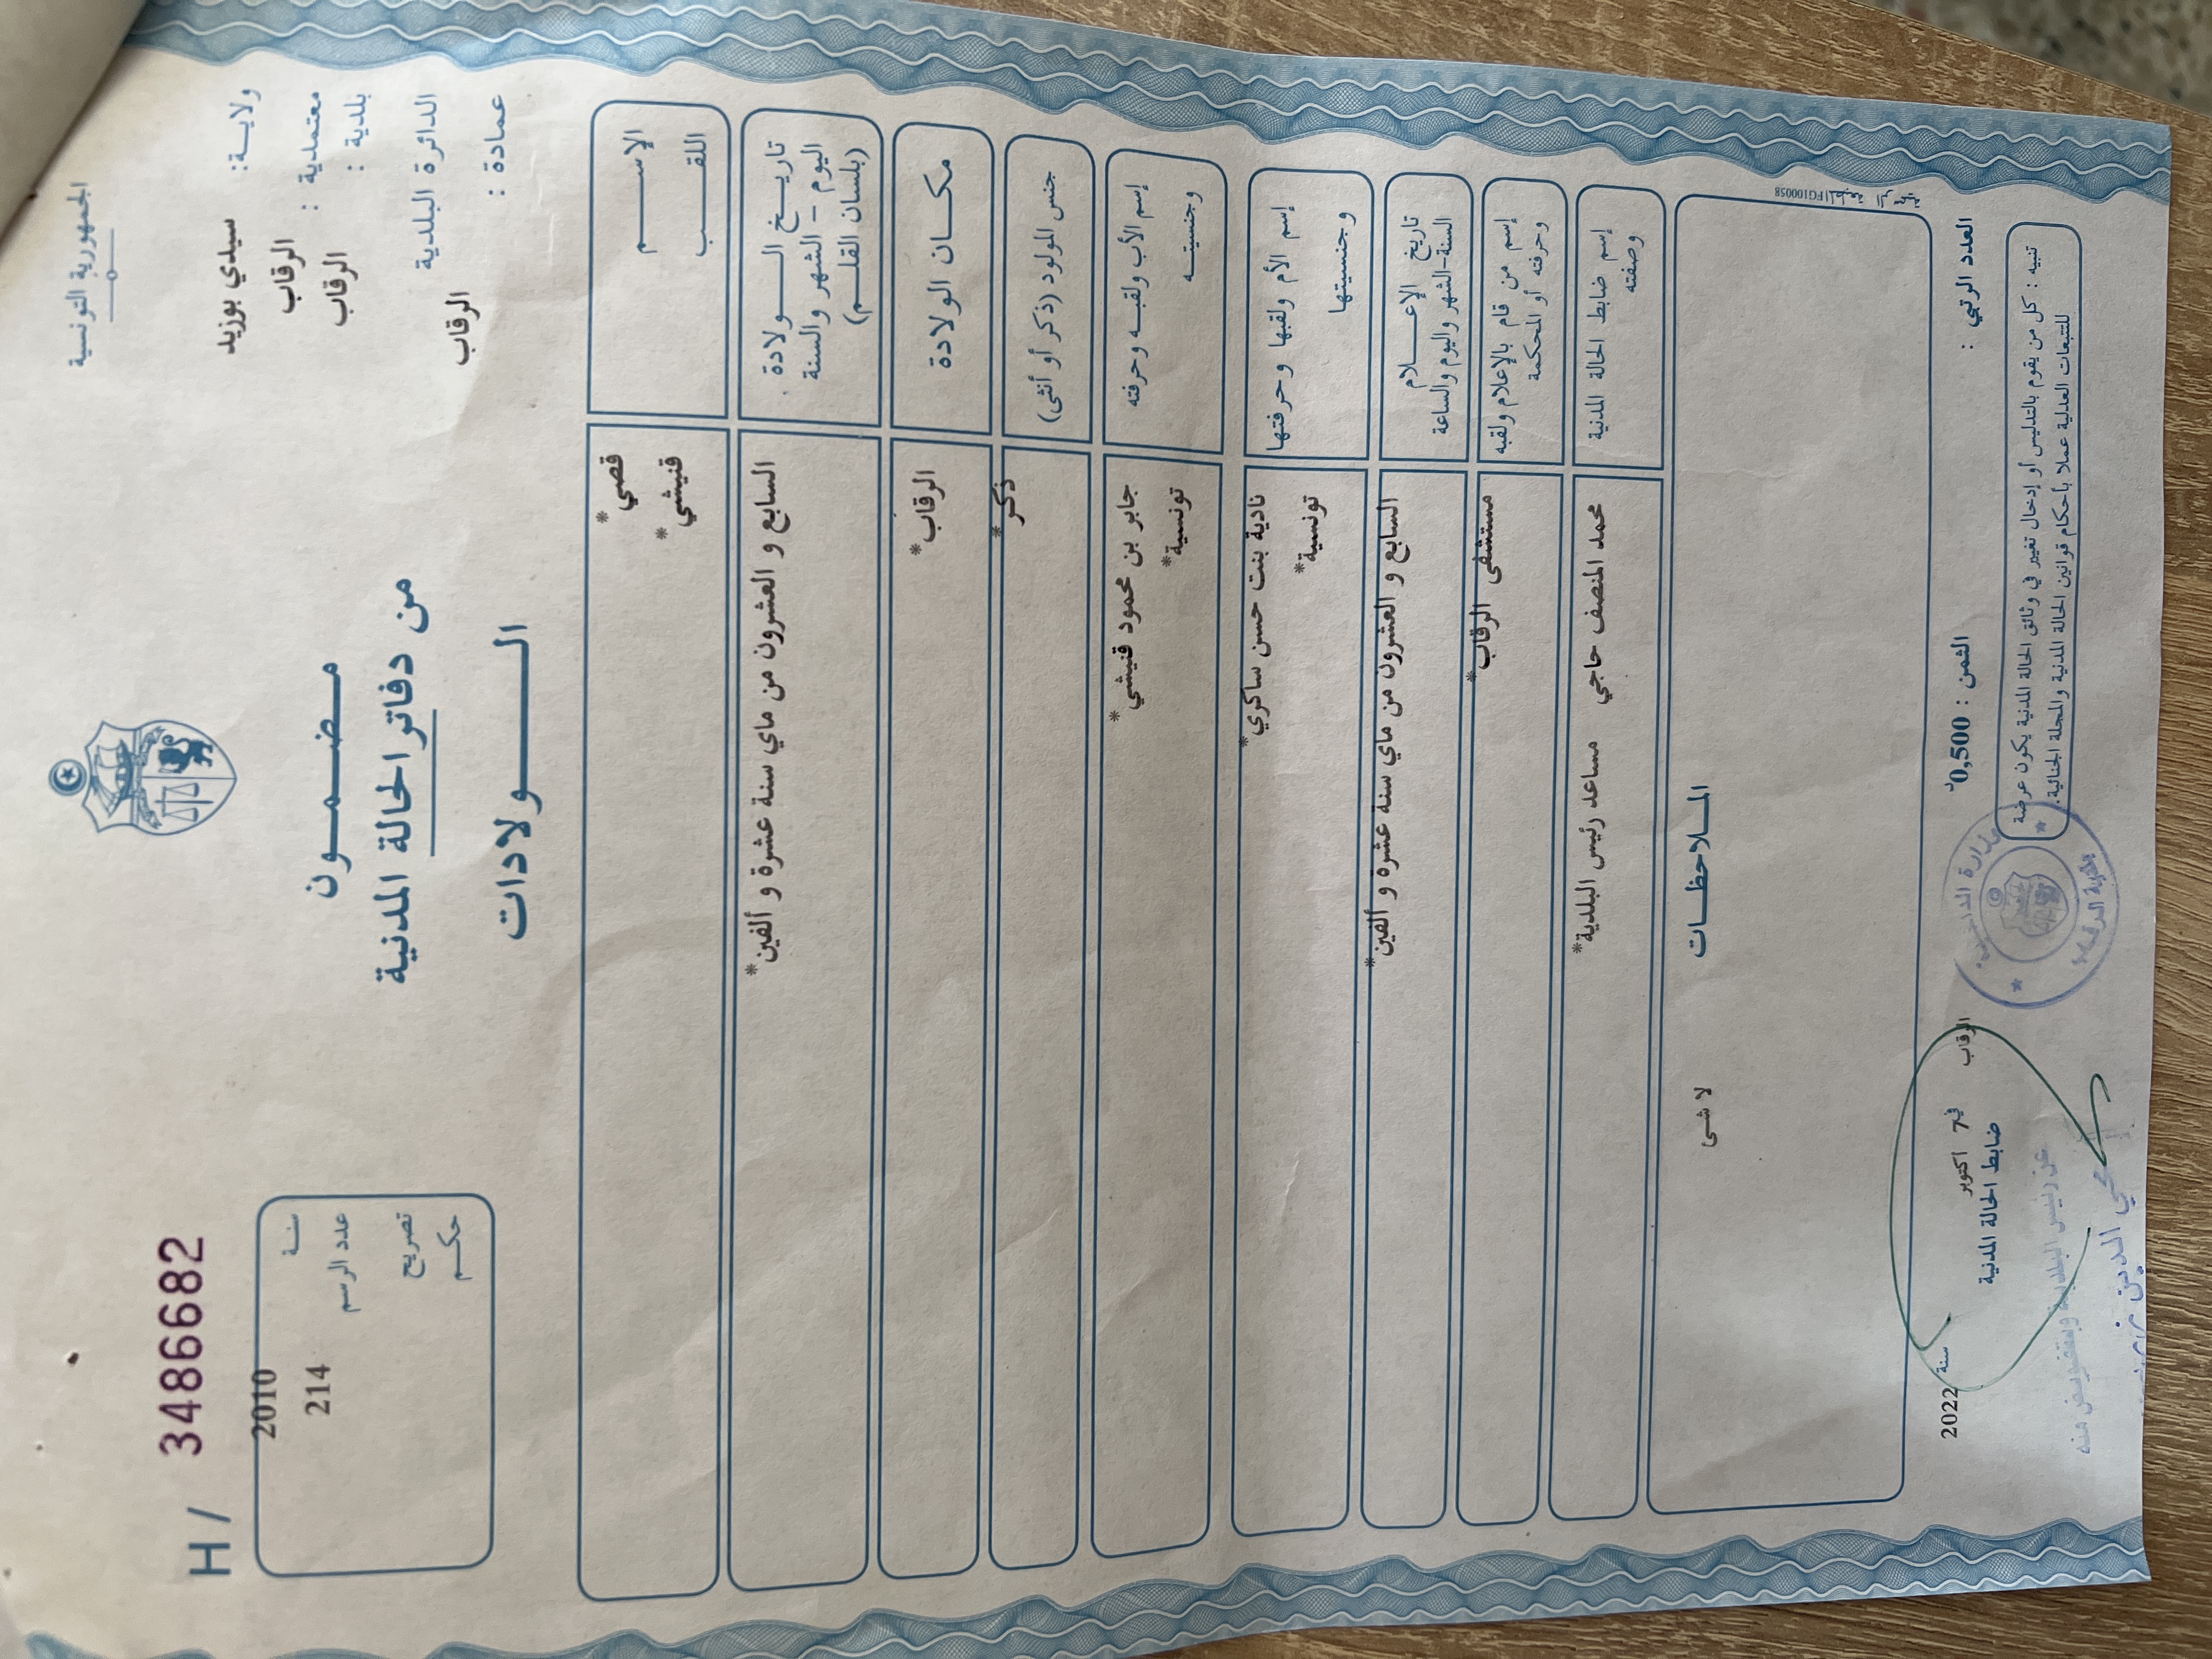 الجمهورية التونسية
ولاية: سيدي بوزيد
معتمدية : الرقاب
بلدية : الرقاب
الدائرة البلدية
الرقاب
عمادة :
H / 3486682
سنة 2010
عدد الرسم 214
تصريح
حكم
مضمون
من دفاتر الحالة المدنية
الولادات
الإسم قصي*
اللقب قنيشي*
تاريخ الولادة
اليوم - الشهر والسنة
(بلسان القلم)
السابع و العشرون من ماي سنة عشرة و ألفين*
مكان الولادة الرقاب*
جنس المولود (ذكر أو أنثى) ذكر*
إسم الأب ولقبه وحرفته جابر بن محمود قنيشي*
وجنسيته تونسية*
إسم الأم ولقبها وحرفتها نادية بنت حسن ساكري*
وجنسيتها تونسية*
تاريخ الإعلام
السنة-الشهر واليوم والساعة
السابع و العشرون من ماي سنة عشرة و ألفين*
إسم من قام بالإعلام ولقبه
وحرفته أو المحكمة
مستشفى الرقاب*
إسم ضابط الحالة المدنية
وصفته
محمد المنصف حاجي مساعد رئيس البلدية*
الملاحظات
لا شى
العدد الرتبي :
الثمن : 0,500د
الرقاب في 7 اكتوبر سنة 2022
ضابط الحالة المدنية
عن رئيس البلدية وبتفويض منه
محي الدين
تنبيه : كل من يقوم بالتدليس أو إدخال تغيير في وثائق الحالة المدنية يكون عرضة
للتتبعات العدلية عملا بأحكام قوانين الحالة المدنية والمجلة الجنائية.
وزارة الداخلية
FG100058